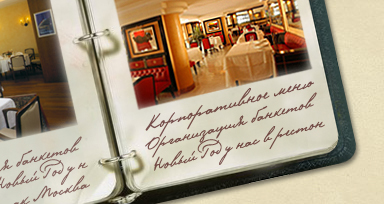 я банкетов
Новый Год у н
ак Москва
Корпоративное меню
Организация банкетов
Новый Год у нас в рестон